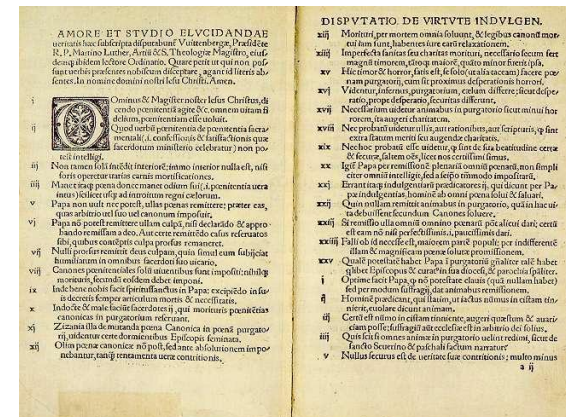 AMORE ET STVDIO ELVCIDANDAE
ueritatis hæc subscripta disputabunť Vuittenbergæ, Præsidẽte
R. P. Martino Luther, Artiũ & S. Theologiæ Magistro, eius-
demq̃ ibidem lectore Ordinario. Quare petit ut qui non pos-
sunt uerbis præsentes nobiscum disceptare, agant id literis ab-
sentes. In nomine domini nostri Iesu Christi. Amen.
i Ominus & Magister noster Iesus Christus, di-
cendo pœnitentiã agite &c. omnem uitam fi
delium, pœnitentiam esse uoluit.
ij Quod uerbũ pœnitentia de pœnitentia sacra
mentali (.i. confessionis & satisfactionis quæ
sacerdotum ministerio celebratur) non po-
test intelligi.
iij Non tamen solã intẽdit interiorẽ: immo interior nulla est, nisi
foris operetur uarias carnis mortificationes.
iiij Manet itaq̃ pœna donec manet odium sui (.i. pœnitentia uera
intus) scilicet usq̃ ad introitum regni cælorum.
v Papa non uult nec potest, ullas pœnas remittere; præter eas,
quas arbitrio uel suo uel canonum imposuit.
vj Papa nõ potest remittere ullam culpã, nisi declarãdo & appro-
bando remissam a deo. Aut certe remittẽdo casus reseruatos
sibi, quibus contẽptis culpa prorsus remaneret.
vij Nulli prorsus remittit deus culpam, quin simul eum subijciat
humiliatum in omnibus sacerdoti suo uicario.
viij Canones pœnitentiales solũ uiuentibus sunt impositi; nihilq̃
morituris, secundũ eosdem debet imponi.
ix Inde bene nobis facit spiritussanctus in Papa; excipiẽdo in su-
is decretis semper articulum mortis & necessitatis.
x Indocte & male faciũt sacerdotes ij, qui morituris pœnitẽtias
canonicas in purgatorium reseruant.
xj Zizania illa de mutanda pœna Canonica in pœnã purgato-
rij, uidentur certe dormientibus Episcopis seminata.
xij Olim pœnæ canonicæ nõ post, sed ante absolutionem impo-
nebantur, tanq̃ tentamenta ueræ contritionis.
DISPVTATIO. DE VIRTVTE INDVLGEN.
xiij Morituri, per mortem omnia soluunt, & legibus canonũ mor-
tui iam sunt, habentes iure earũ relaxationem.
xiiij Imperfecta sanitas seu charitas morituri, necessario secum fert
magnũ timorem, tãtoq̃ maiorẽ, quãto minor fuerit ipsa.
xv Hic timor & horror, satis est, se solo (ut alia taceam) facere pœ-
nam purgatorij, cum sit proximus desperationis horrori.
xvj Videntur, infernus, purgatorium, cælum differre; sicut despe-
ratio, prope desperatio, securitas differunt.
xvij Necessarium uidetur animabus in purgatorio sicut minui hor
rorem, ita augeri charitatem.
xviij Nec probatũ uidetur ullis, aut rationibus, aut scripturis, q̃ sint
extra statum meriti seu augendæ charitatis.
xix Nec hoc probatũ esse uidetur, q̃ sint de sua beatitudine certæ
& securæ, saltem oẽs, licet nos certissimi simus.
xx Igitˀ Papa per remissionẽ plenariã omniũ pœnarũ, non simpli
citer omniũ intelligit, sed a seipso tãtummodo impositarũ.
xxj Errant itaq̃ indulgentiarũ prædicatores ij, qui dicunt per Pa-
pæ indulgentias, hominẽ ab omni pœna solui & saluari.
xxij Quin nullam remittit animabus in purgatorio, quã in hac ui-
ta debuissent secundum Canones soluere.
xxiij Si remissio ulla omniũ omnino pœnarũ põt alicui dari; certũ
est eam nõ nisi perfectissimis, i. paucissimis dari.
xxiiij Falli ob id necesse est, maiorem partẽ populi; per indifferentẽ
illam & magnificam pœnæ solutæ promissionem.
xxv Qualẽ potestatẽ habet Papa ĩ purgatoriũ gñaliter talẽ habet
q̃libet Episcopus & curatˀ in sua diœcesi, & parochia spãliter.
i Optime facit Papa, q̃ nõ potestate clauis (quã nullam habet)
sed per modum suffragij, dat animabus remissionem.
ij Hominẽ prædicant, qui statim, ut iactus nũmus in cistam tin-
nierit, euolare dicunt animam.
iij Certũ est nũmo in cistam tinniente, augeri quæstum & auari-
ciam posse; suffragiũ aũt ecclesiæ est in arbitrio dei solius.
iiij Quis scit si omnes animæ in purgatorio uelint redimi, sicut de
sancto Seuerino & paschali factum narratur.
v Nullus securus est de ueritate suæ contritionis; multo minus
a ij